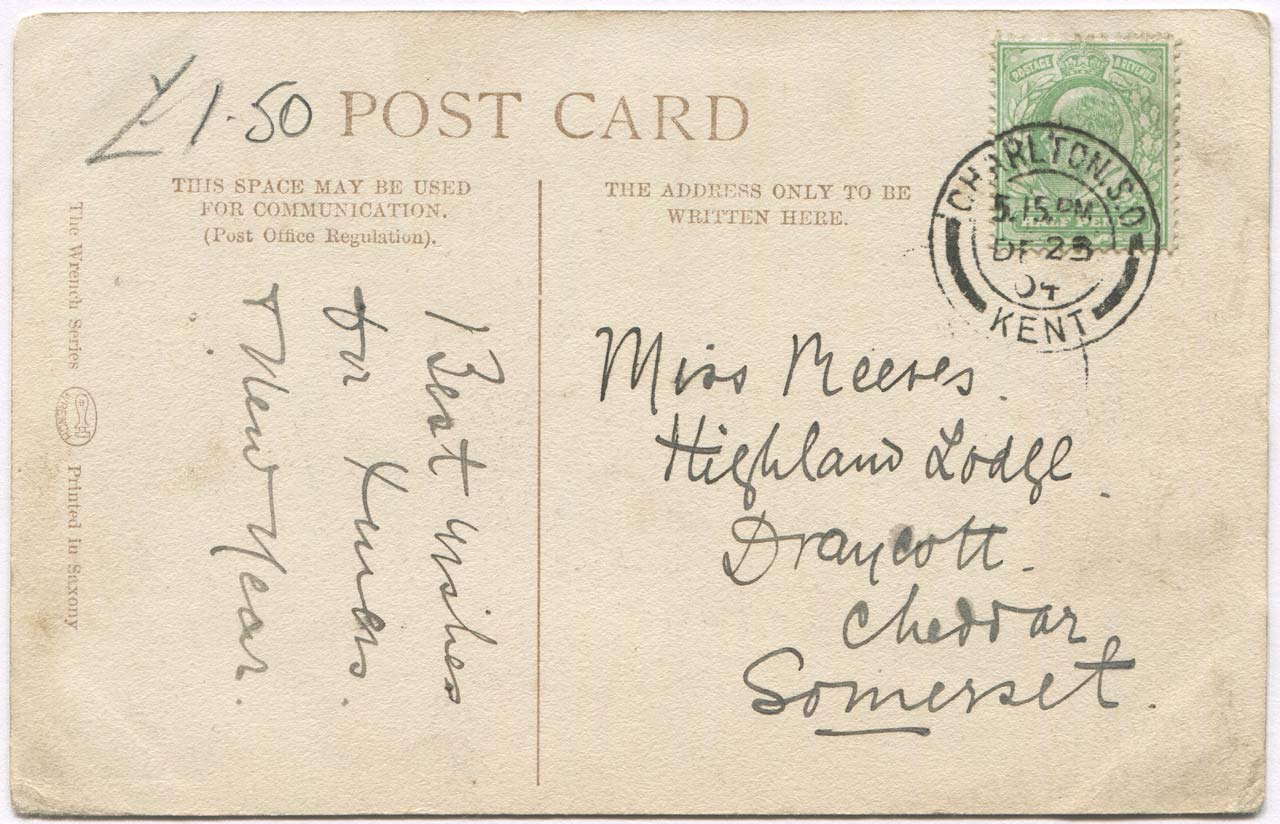 £1.50
POST CARD
THIS SPACE MAY BE USED
FOR COMMUNICATION.
(Post Office Regulation).
THE ADDRESS ONLY TO BE
WRITTEN HERE.
POSTAGE & REVENUE
HALF PENNY
CHARLTON.S.O
5.15 PM
DE 23
04
KENT
The Wrench Series
WRENCH
Printed in Saxony
Best Wishes
for Xmas.
& New Year.
Miss Reeves.
Highland Lodge.
Draycott.
Cheddar
Somerset.